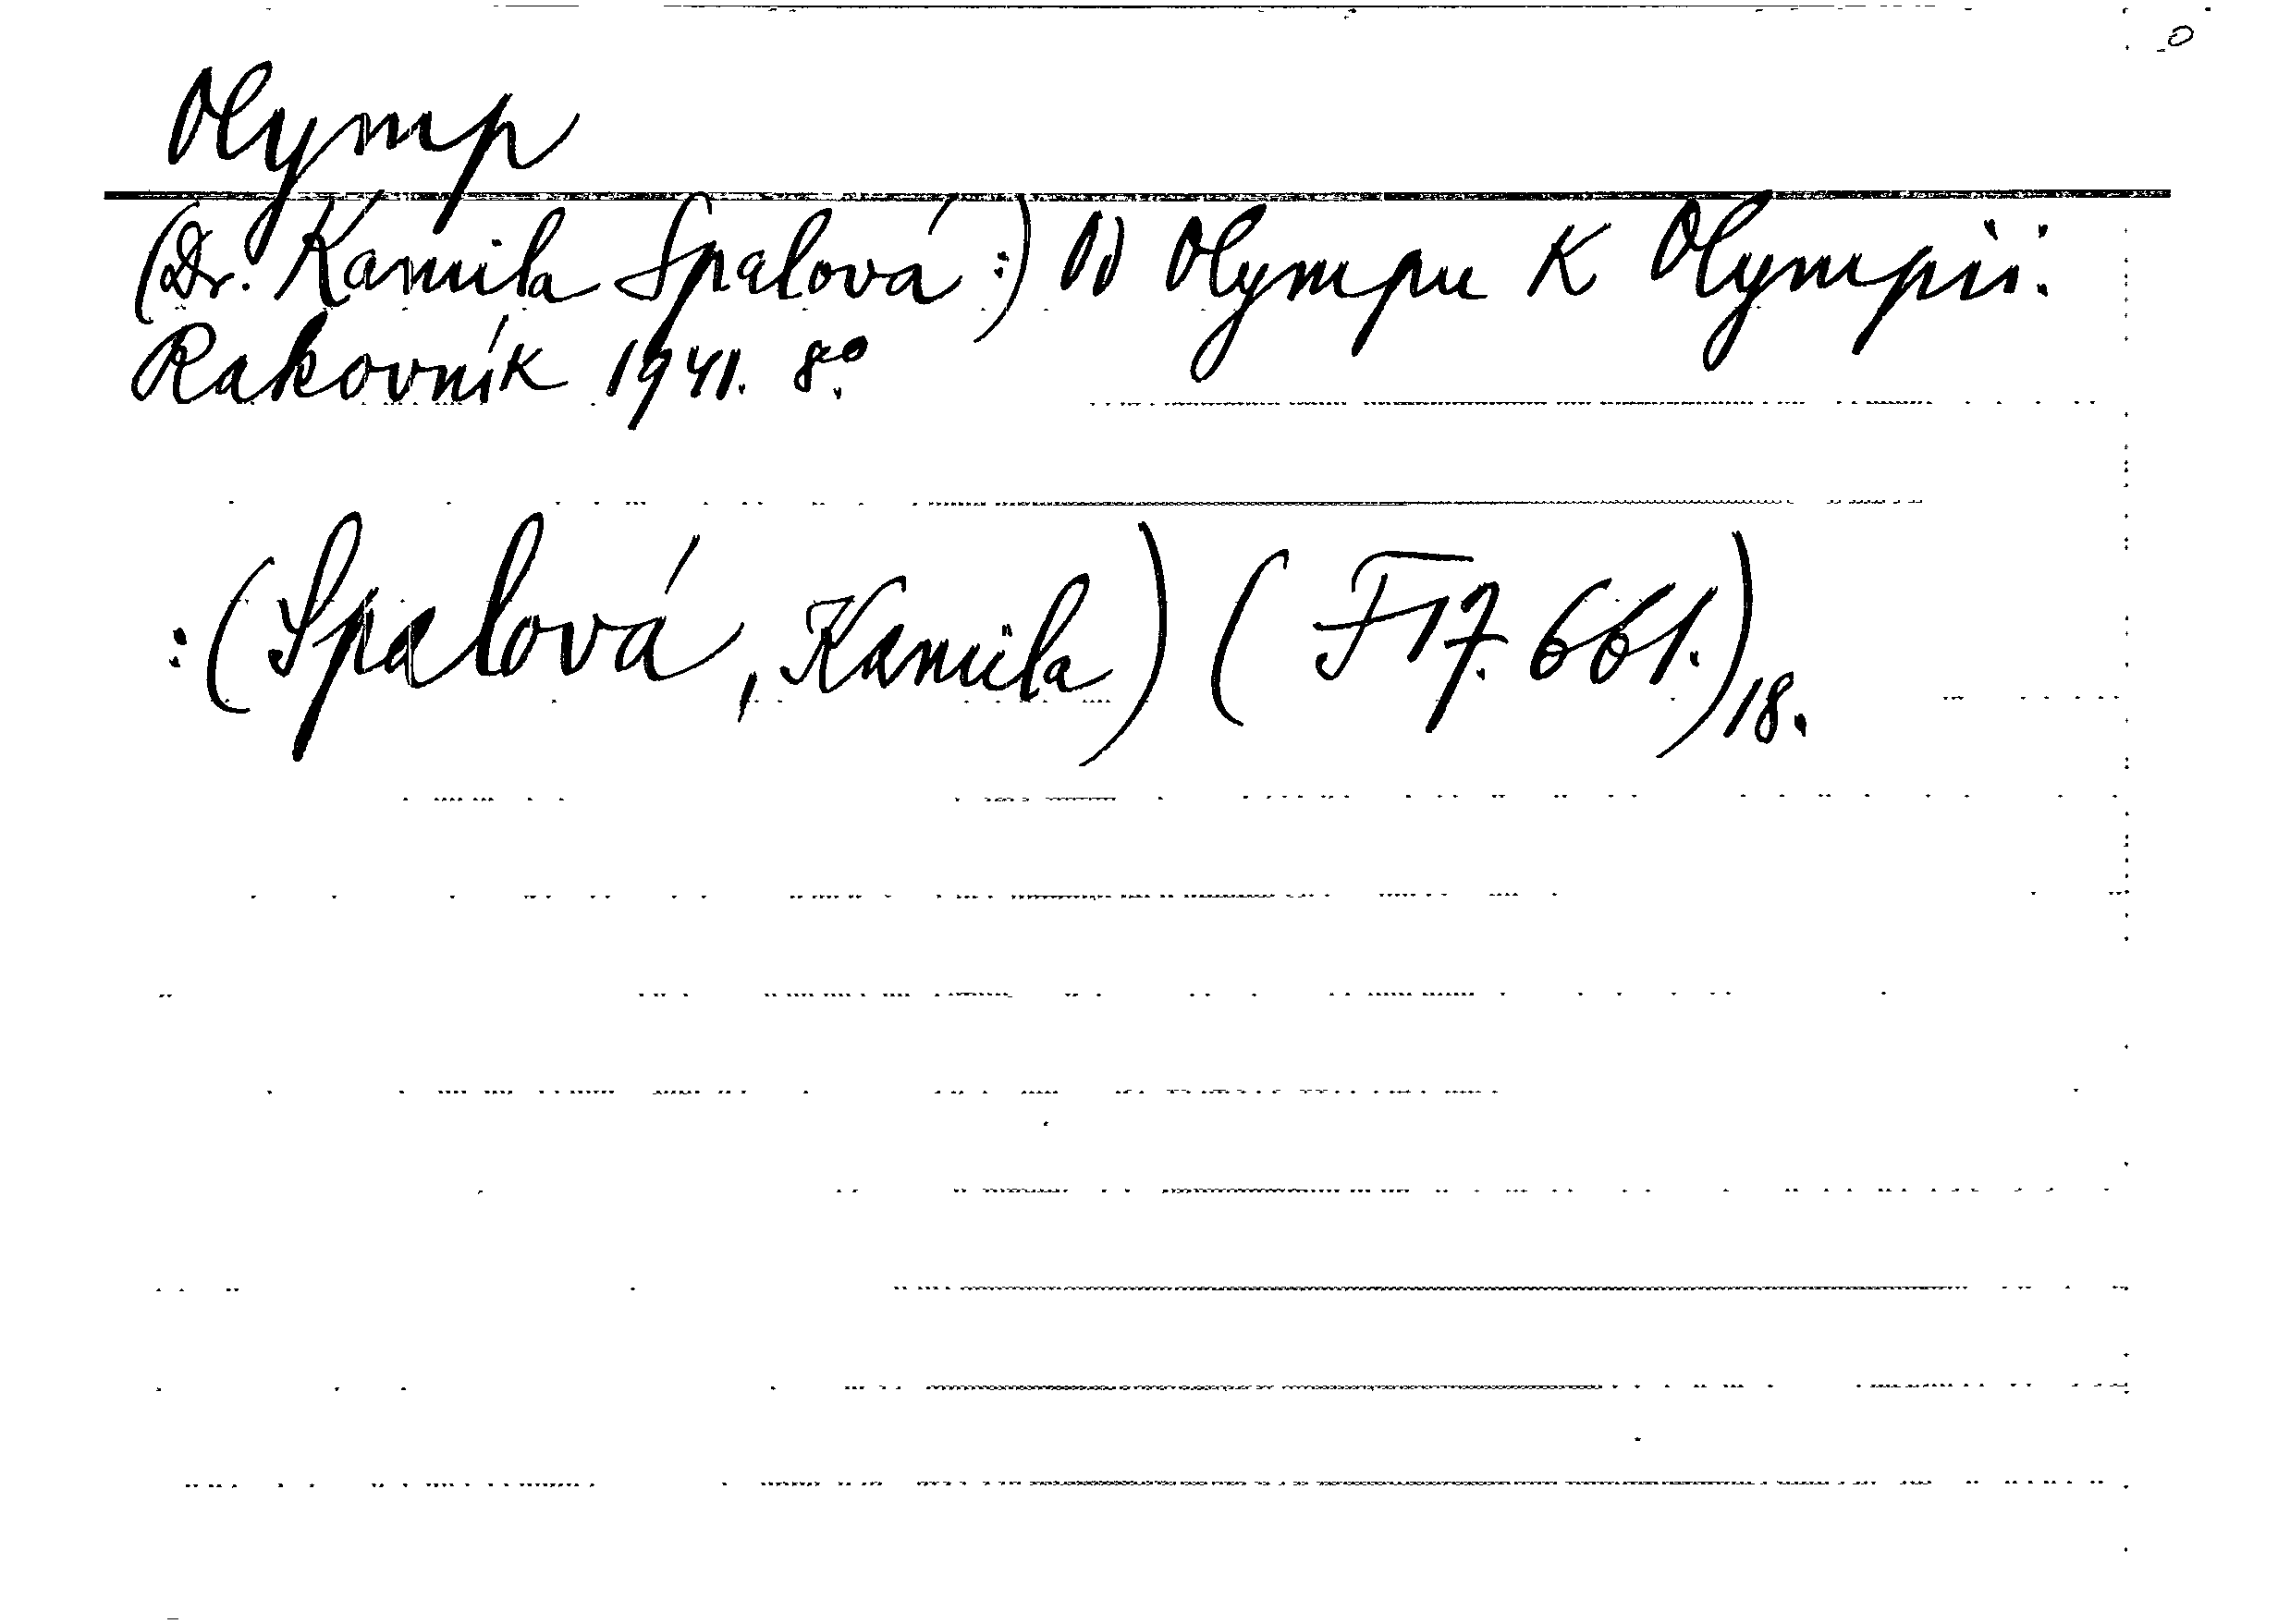 Olymp
(Dr. Kamila Spalová:) Od Olympu k Olympii.
Rakovník 1941. 8°.
:(Spalová, Kamila) (F 17. 661.)18.